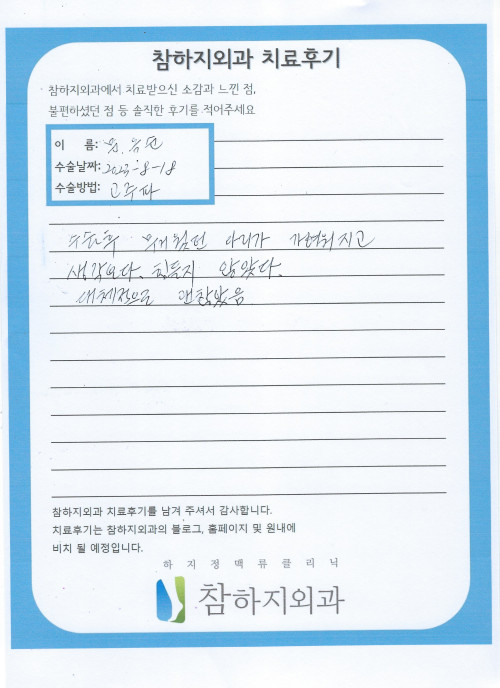 참하지외과 치료후기
참하지외과에서 치료받으신 소감과 느낀 점,
불편하셨던 점 등 솔직한 후기를 적어주세요
이 름:
수술날짜: 2023-8-18
수술방법: 고주파
수술후 무거웠던 다리가 가벼워지고
생각보다. 힘들지 않았다.
대체적으로 괜찮았음
참하지외과 치료후기를 남겨 주셔서 감사합니다.
치료후기는 참하지외과의 블로그, 홈페이지 및 원내에
비치 될 예정입니다.
하지정맥류클리닉
참하지외과